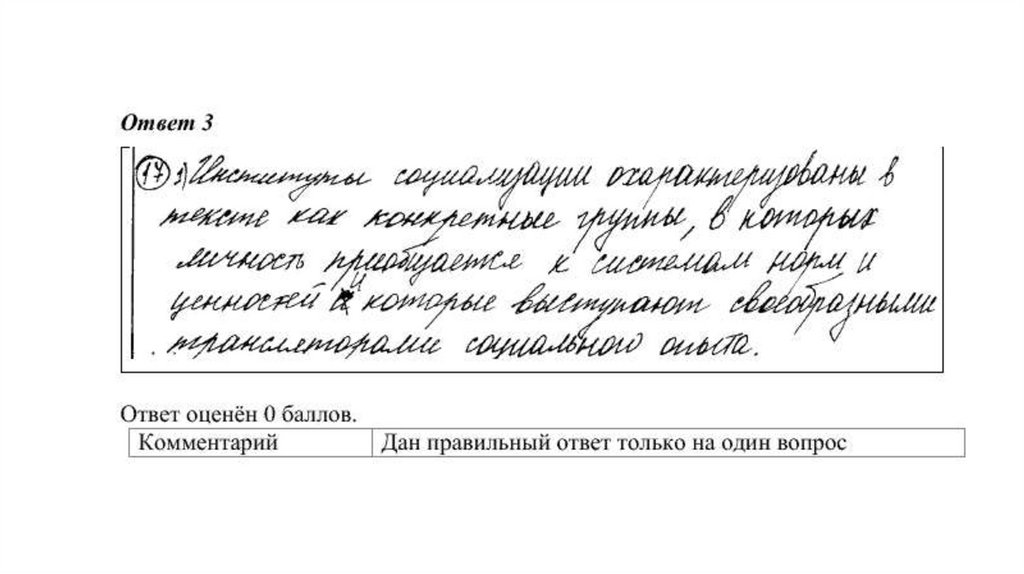 Ответ 3
17 1) Институты социализации охарактеризованы в
тексте как конкретные группы, в которых
личность приобщается к системам норм и
ценностей и которые выступают своеобразными
трансляторами социального опыта.
Ответ оценён 0 баллов.
Комментарий Дан правильный ответ только на один вопрос